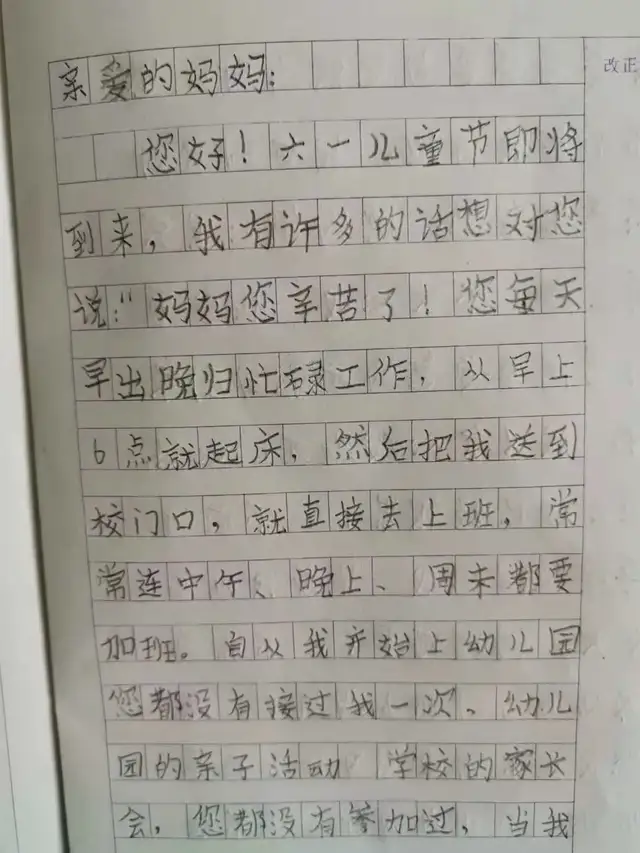 改正
亲爱的妈妈：
您好！六一儿童节即将
到来，我有许多的话想对您
说：“妈妈您辛苦了！您每天
早出晚归忙碌工作，从早上
6点就起床，然后把我送到
校门口，就直接去上班，常
常连中午、晚上、周末都要
加班。自从我开始上幼儿园
您都没有接过我一次、幼儿
园的亲子活动 学校的家长
会，您都没有参加过，当我